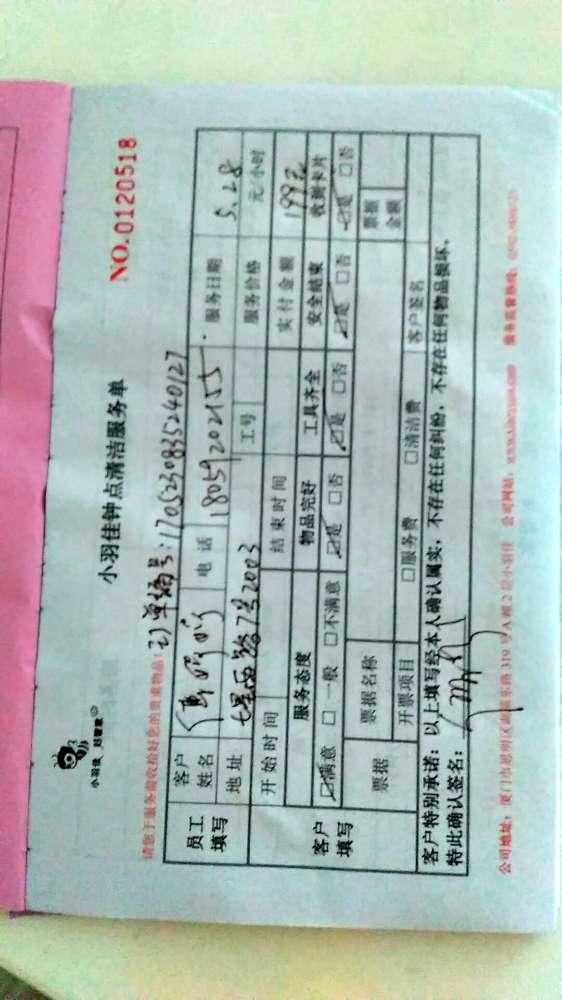 小羽佳 好管家
小羽佳钟点清洁服务单
NO.0120518
请您于服务前收拾好您的贵重物品!
单编号:1705230835240127
员工填写
客户姓名
电话 18059202155
服务日期 5.28
地址 七星西路7号2003
工号
服务价格 元/小时
开始时间
结束时间
实付金额 199元
客户填写
服务态度 物品完好 工具齐全 安全结束 收到卡片
☑满意 □一般 □不满意 ☑是 □否 ☑是 □否 ☑是 □否 ☑是 □否
票据
票据名称
票据金额
开票项目 □服务费 □清洁费
客户签名
客户特别承诺:以上填写经本人确认属实,不存在任何纠纷,不存在任何物品损坏,
特此确认签名:
公司地址:厦门市思明区湖滨东路 319 号 A 幢 2 层小羽佳 公司网站: 服务监督热线: